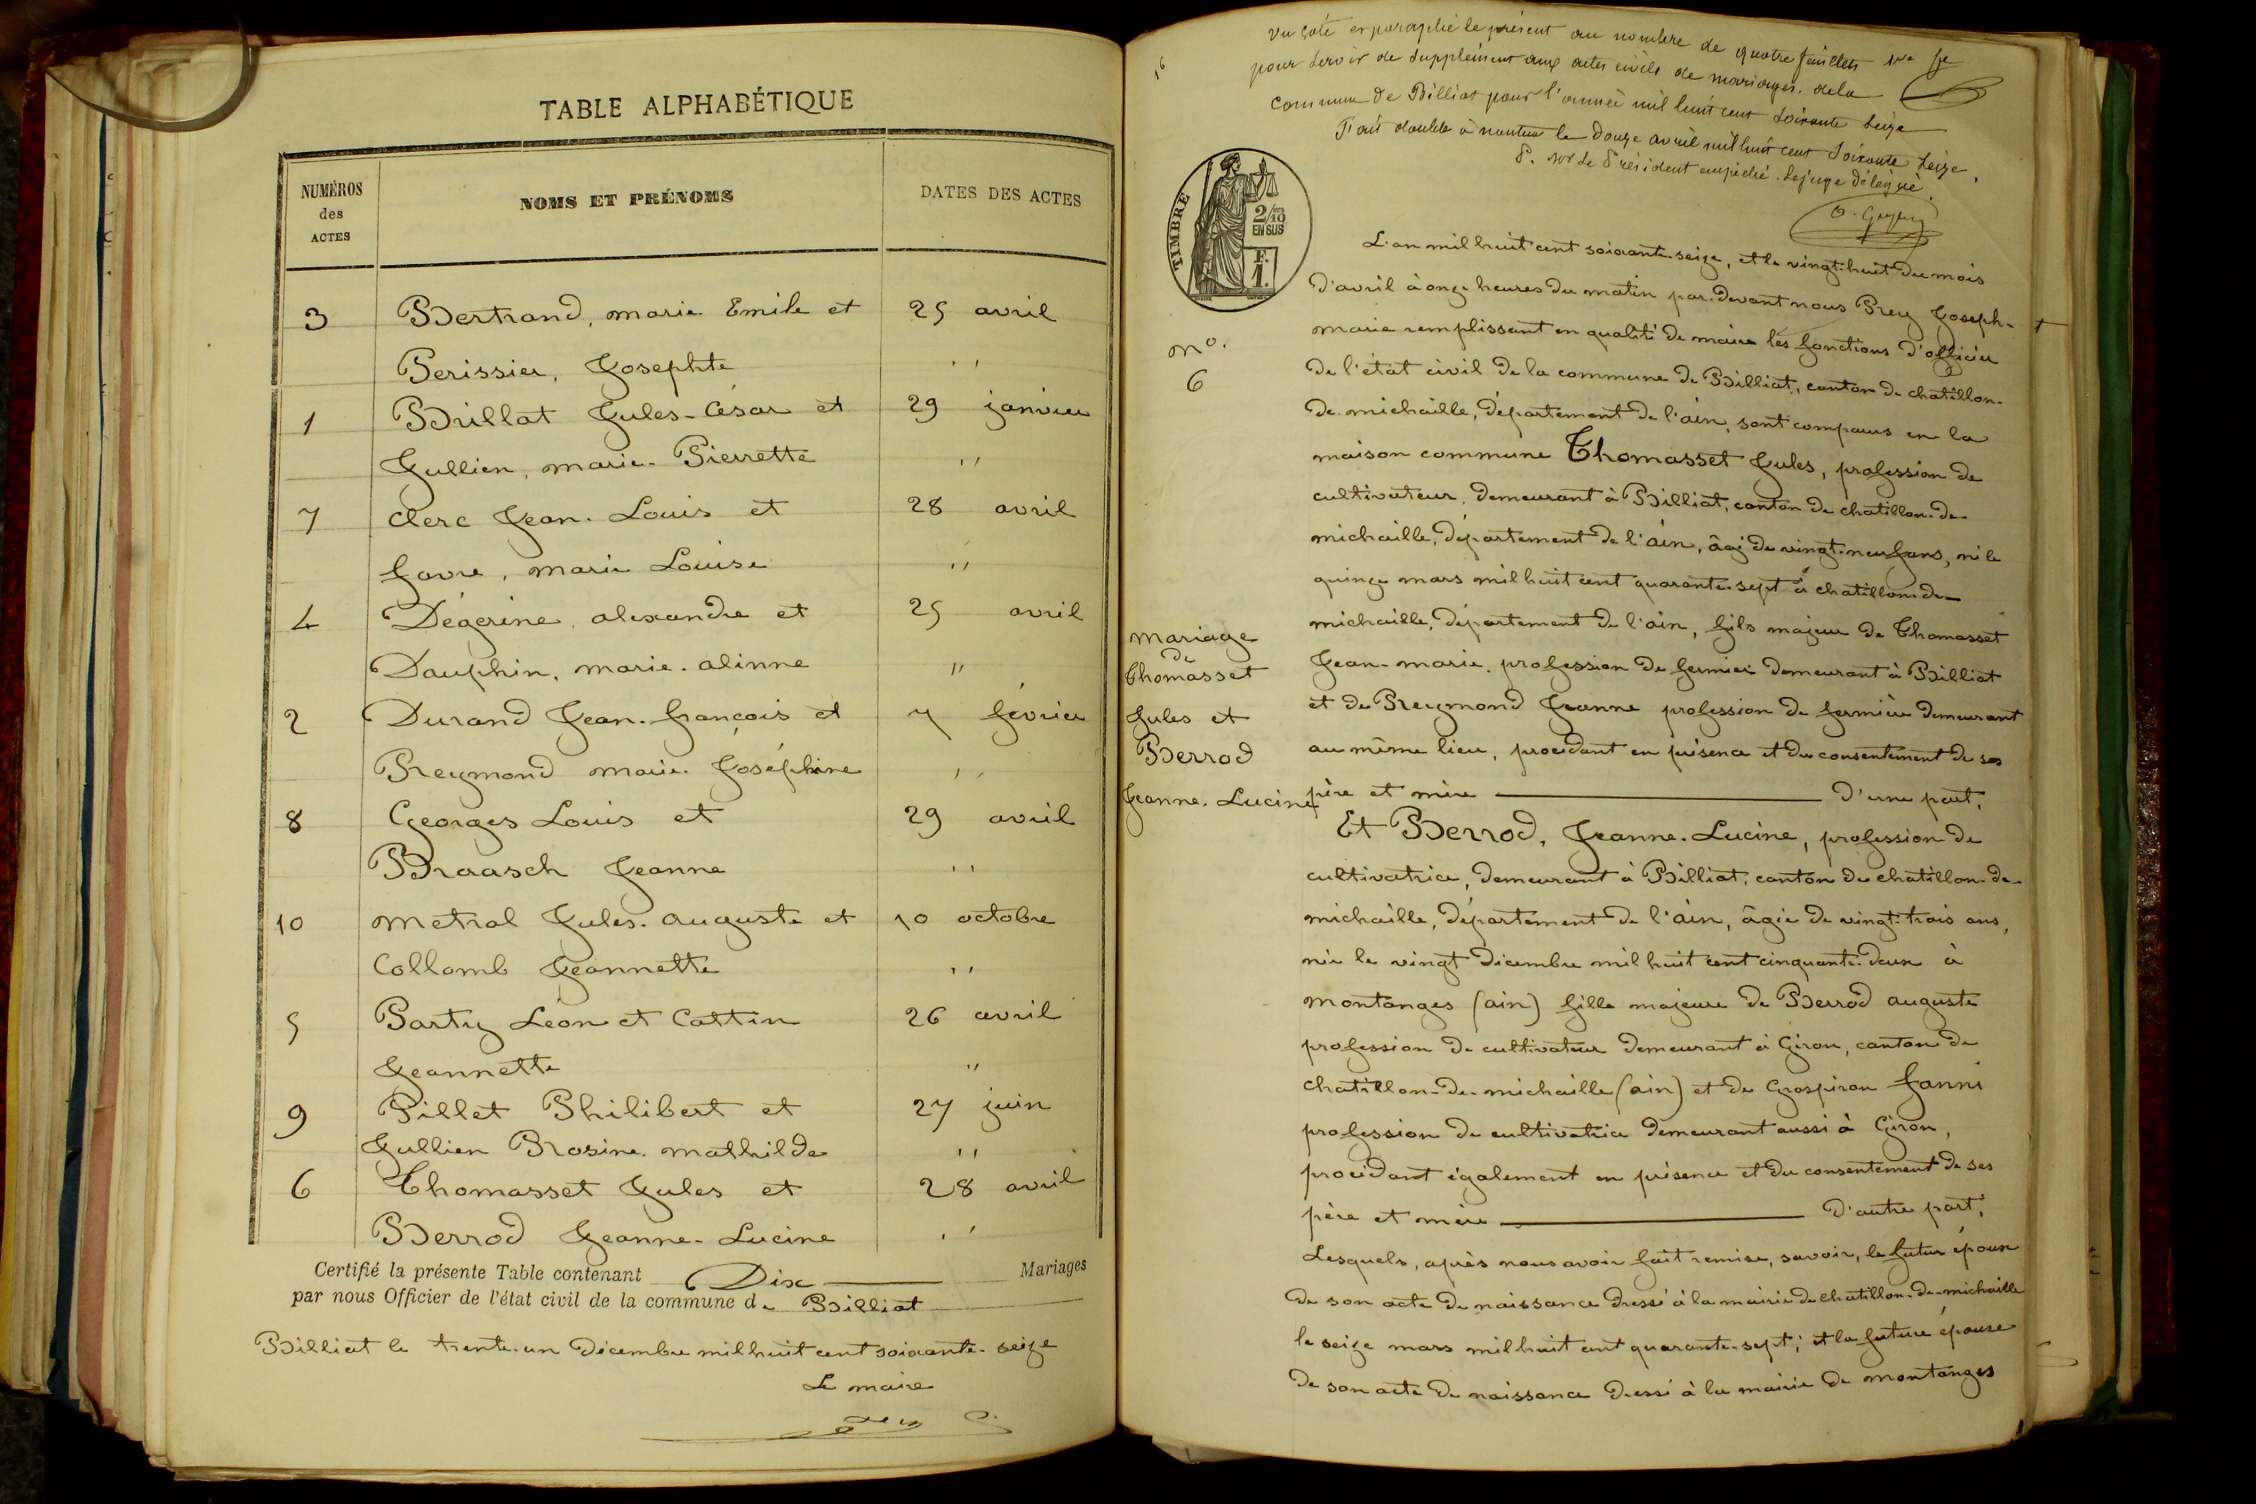 TABLE ALPHABÉTIQUE
NUMÉROS des ACTES
NOMS ET PRÉNOMS
DATES DES ACTES
3 Bertrand, marie Emile et 25 avril
Perissier, Josephte ''
1 Brillat Jules-César et 29 janvier
Jullien, marie-Pierrette ''
7 Clerc Jean-Louis et 28 avril
favre, marie Louise ''
4 Dégerine, alexandre et 25 avril
Dauphin, marie-alinne ''
2 Durand Jean-françois et 7 février
Preymond marie-Joséphine ''
8 Georges Louis et 29 avril
Braasch Jeanne ''
10 metral Jules-auguste et 10 octobre
Collomb Jeannette ''
5 Party Léon et Cattin 26 avril
Jeannette ''
9 Pillet Philibert et 27 juin
Jullien Rosine-mathilde ''
6 Thomasset Jules et 28 avril
Berrod Jeanne-Lucine ''
Certifié la présente Table contenant Dix Mariages
par nous Officier de l'état civil de la commune de Billiat
Billiat le trente-un Décembre mil huit cent soixante-seize
Le maire
16
Vu coté et paraphé le présent au nombre de quatre feuillets
pour servir de supplément aux actes civils de mariages de la
commune de Billiat pour l'année mil huit cent soixante seize
Fait double à nantua le douze avril mil huit cent soixante seize.
P. Mr le Président empêché. Le juge délégué
TIMBRE
2/10
EN SUS
F.
1.
no.
6
mariage
de
Thomasset
Jules et
Berrod
Jeanne-Lucine
L'an mil huit cent soixante-seize, et le vingt-huit du mois
d'avril à onze heures du matin par-devant nous Prey Joseph-
marie remplissant en qualité de maire les fonctions d'officier
de l'état civil de la commune de Billiat, canton de chatillon-
de-michaille, département de l'ain, sont comparus en la
maison commune Thomasset Jules, profession de
cultivateur, demeurant à Billiat, canton de chatillon-de-
michaille, département de l'ain, âgé de vingt-neuf ans, né le
quinze mars mil huit cent quarante-sept à chatillon-de-
michaille, département de l'ain, fils majeur de Thomasset
Jean-marie, profession de fermier demeurant à Billiat
et de Preymond Jeanne profession de fermière demeurant
au même lieu, procédant en présence et du consentement de ses
père et mère d'une part,
Et Berrod, Jeanne-Lucine, profession de
cultivatrice, demeurant à Billiat, canton de chatillon-de-
michaille, département de l'ain, âgée de vingt-trois ans,
née le vingt Décembre mil huit cent cinquante-deux à
montanges (ain) fille majeure de Berrod auguste
profession de cultivateur demeurant à Giron, canton de
chatillon-de-michaille (ain) et de Grospiron Fanni
profession de cultivatrice demeurant aussi à Giron,
procédant également en présence et du consentement de ses
père et mère d'autre part;
Lesquels, après nous avoir fait remise, savoir, le futur époux
de son acte de naissance dressé à la mairie de chatillon-de-michaille
le seize mars mil huit cent quarante-sept; et la future épouse
de son acte de naissance dressé à la mairie de montanges